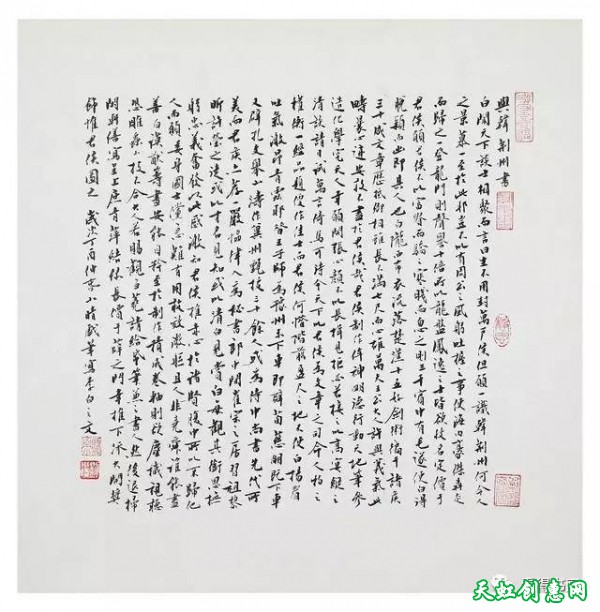 與韓荊州書
白聞天下談士相聚而言曰生不用封萬戶侯但願一識韓荊州何令人
之景慕一至於此耶豈不以有周公之風躬吐握之事使海內豪傑奔走
而歸之一登龍門則聲譽十倍所以龍盤鳳逸之士皆欲收名定價於
君侯願君侯不以富貴而驕之寒賤而忽之則三千賓中有毛遂使白得
穎脫而出即其人也白隴西布衣流落楚漢十五好劍術徧干諸侯
三十成文章歷抵卿相雖長不滿七尺而心雄萬夫王公大人許與氣義此
疇曩心跡安敢不盡於君侯哉君侯制作侔神明德行動天地筆參
造化學究天人幸願開張心顏不以長揖見拒必若接之以高宴縱之
清談請日試萬言倚馬可待今天下以君侯為文章之司命人物之
權衡一經品題便作佳士而君侯何惜階前盈尺之地不使白揚眉
吐氣激昂青雲耶昔王子師為豫州未下車即辟荀慈明既下車
又辟孔文舉山濤作冀州甄拔三十餘人或為侍中尚書先代所
美而君侯亦一薦嚴協律入為秘書郎中間崔宗之房習祖黎
昕許瑩之徒或以才名見知或以清白見賞白每觀其銜恩撫
躬忠義奮發以此感激知君侯推赤心於諸賢腹中所以不歸他
人而願委身國士儻急難有用敢效微軀且人非堯舜誰能盡
善白謨猷籌畫安能自矜至於制作積成卷軸則欲塵穢視聽
恐雕蟲小技不合大人若賜觀芻蕘請給紙筆兼之書人然後退掃
閒軒繕寫呈上庶青萍結綠長價於薛卞之門幸推下流大開獎
飾惟君侯圖之 歲次丁酉仲冬 筆寫李白之文
天虹创意网